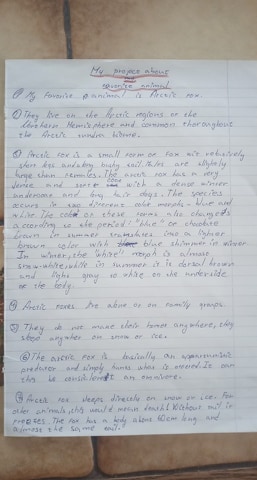 My project about
favourite animal
① My favorite animal is Arctic fox.
② They live on the Arctic regions of the
Northern Hemisphere and common thoroughout
the Arctic tundra biome.
③ Arctic fox is a small form of fox with relatively
short legs and a long bushy tail. Males are slightly
larger than females. The arctic fox has a very
dense and soft coat with a dense winter
undercoat and long hair tops. The species
occurs in two different color morphs - blue and
white. The color of these forms also changes
according to the period: "blue" or chocolate
brown in summer transforms into a lighter
brown color with blue shimmer in winter.
In winter, the "white" morph is almost
straw-white, while in summer it is dorsal brown
and light gray to white on the underside
of the body.
④ Arctic foxes live alone or on family groups.
⑤ They do not make their homes anywhere, they
sleep anyher on snow or ice.
⑥ The arctic fox is basically an opportunistic
predator and simply hunts what is offered. In can
this be considered an omnivore.
⑦ Arctic fox sleeps directly on snow or ice. For
other animals, this would mean death! Without tail it
freezes. The fox has a body about 60 cm long and
almost the same tail.